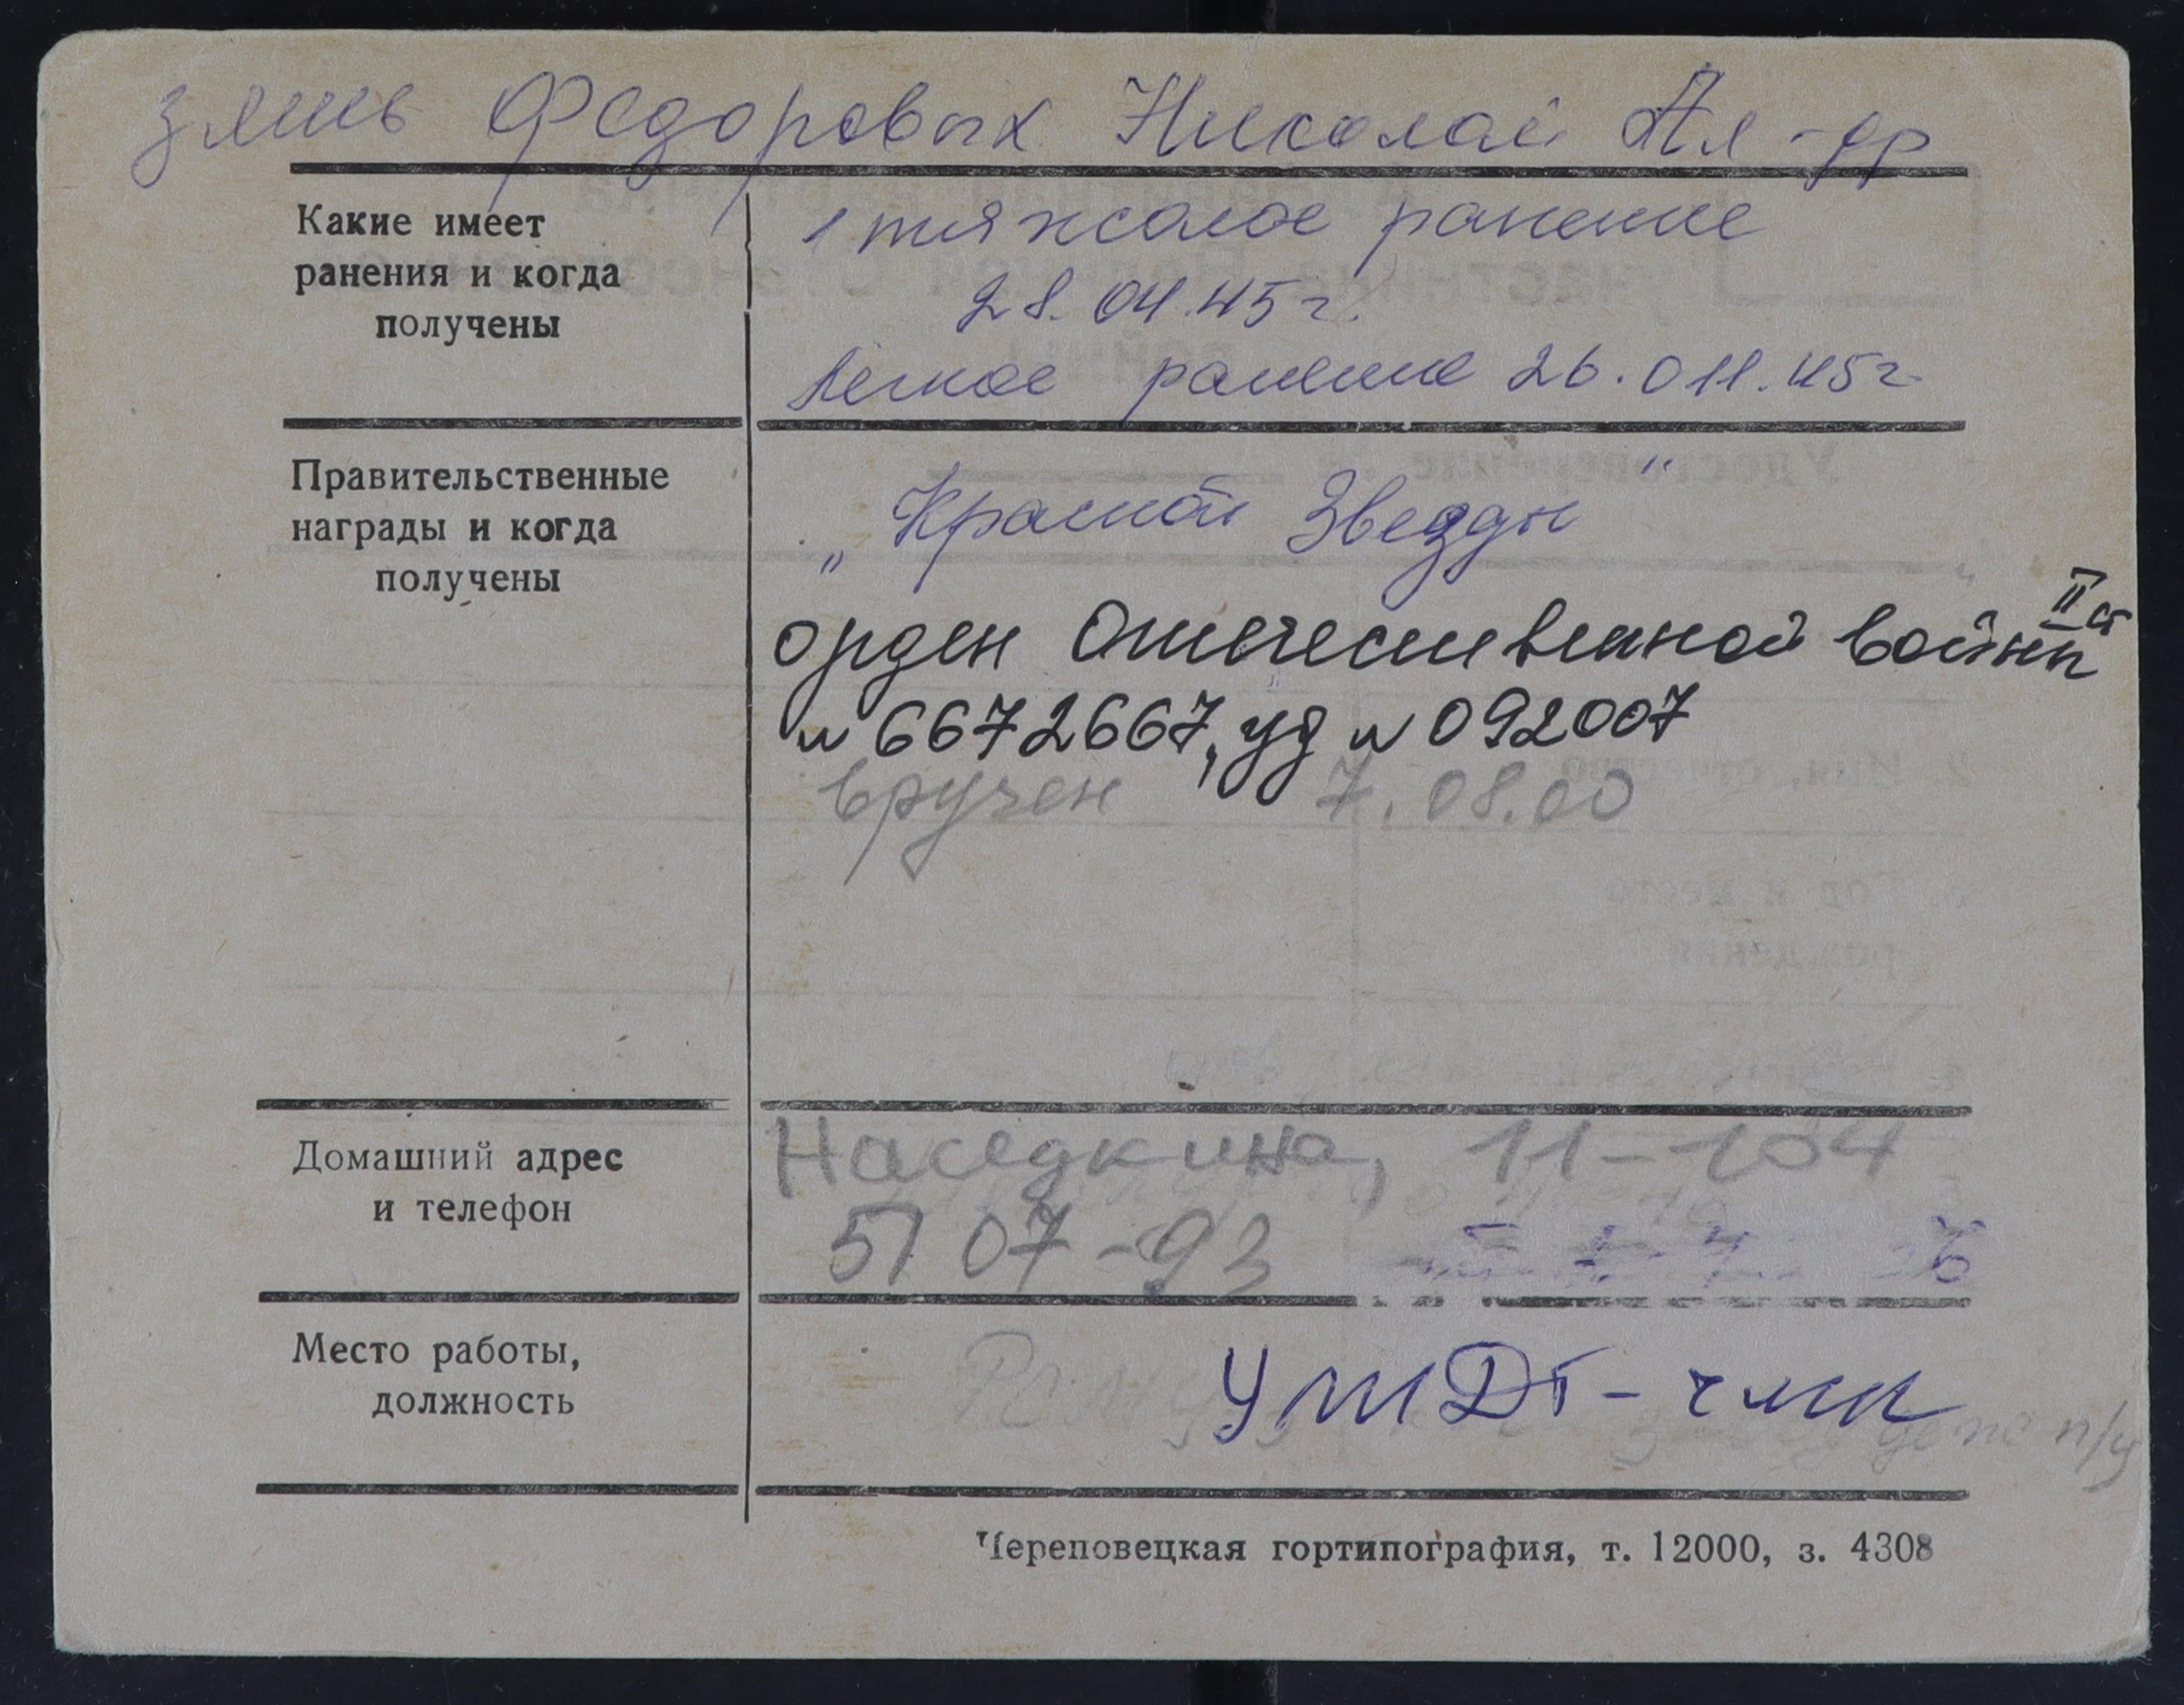 Федоровых Николай Ал-др
Какие имеет
ранения и когда
получены
1 тяжолое ранение
28.04.45г.
Легкое ранение 26.011.45г
Правительственные
награды и когда
получены
„Красной Звезды"
орден Отечественной войны II ст
№ 6672667, уд № 092007
вручен 7.08.00
Домашний адрес
и телефон
Наседкина, 11-104
51 07-93
Место работы,
должность
УЖДТ-чмк
п/у
Череповецкая гортипография, т. 12000, з. 4308